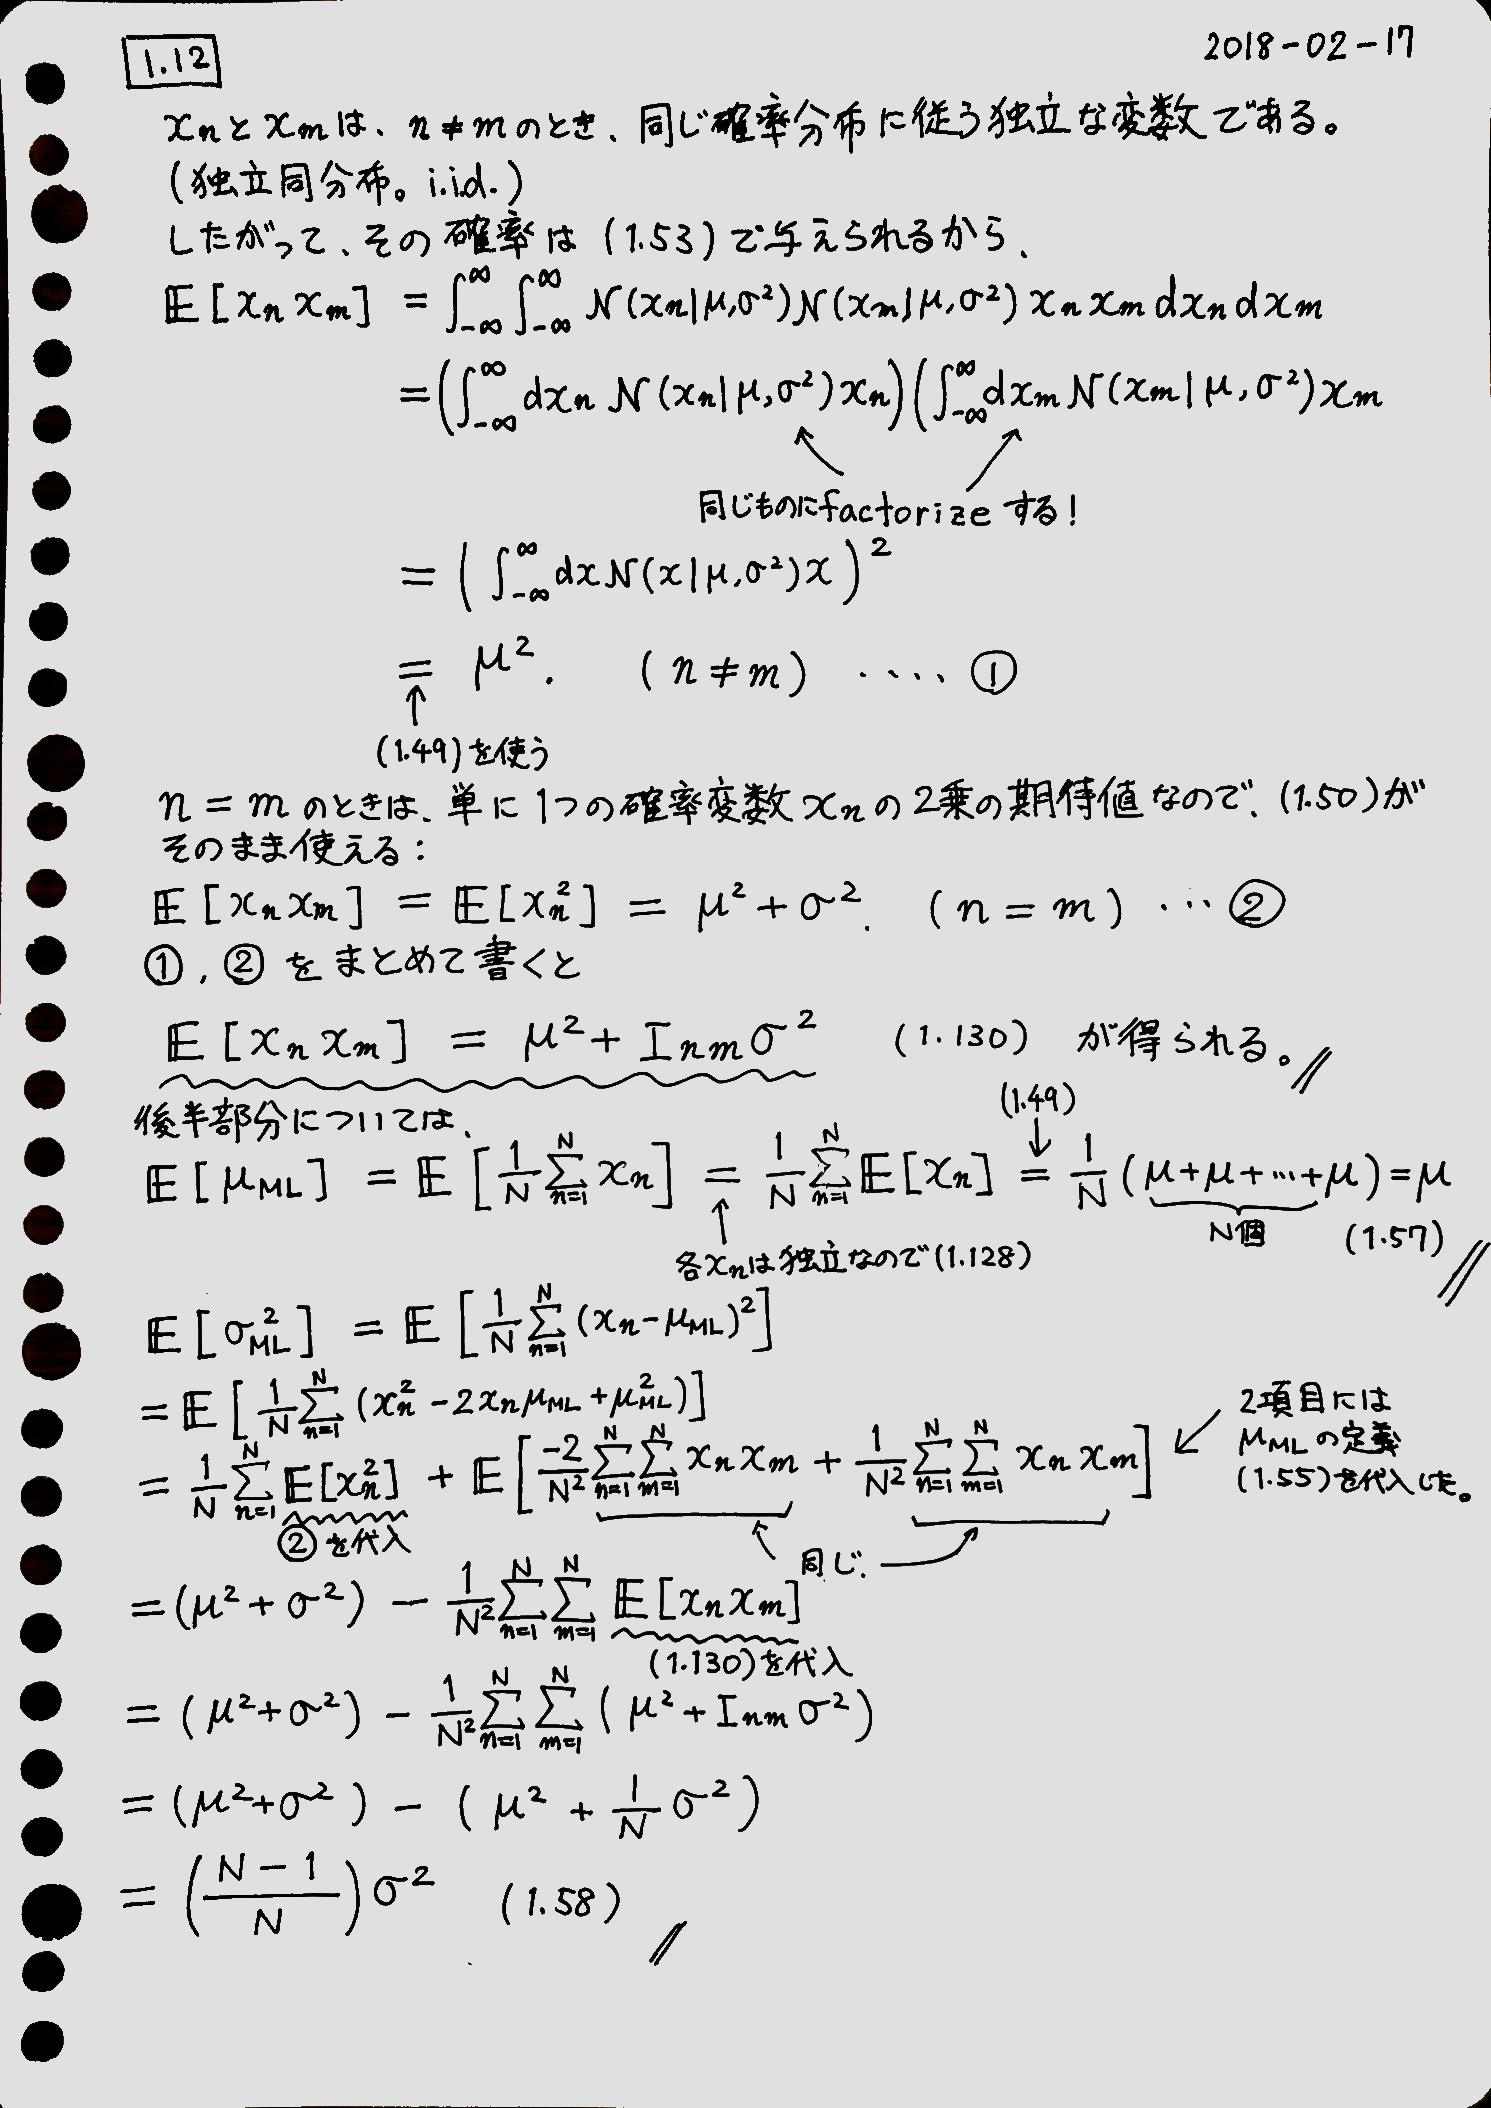 1.12
2018-02-17
xnとxmは、n≠mのとき、同じ確率分布に従う独立な変数である。
(独立同分布。i.i.d.)
したがって、その確率は(1.53)で与えられるから、
𝔼[xn xm] = ∫_{-∞}^{∞} ∫_{-∞}^{∞} N(xn|μ,σ²)N(xm|μ,σ²) xn xm dxn dxm
= (∫_{-∞}^{∞} dxn N(xn|μ,σ²)xn)(∫_{-∞}^{∞} dxm N(xm|μ,σ²)xm
同じものにfactorizeする!
= (∫_{-∞}^{∞} dx N(x|μ,σ²)x)²
= μ². (n≠m) ‥‥ ①
(1.49)を使う
n=mのときは、単に1つの確率変数xnの2乗の期待値なので、(1.50)が
そのまま使える:
𝔼[xn xm] = 𝔼[xn²] = μ²+σ². (n=m) … ②
①,②をまとめて書くと
𝔼[xn xm] = μ²+Inmσ² (1.130) が得られる。//
後半部分については、
(1.49)
𝔼[μML] = 𝔼[1/N Σ_{n=1}^{N} xn] = 1/N Σ_{n=1}^{N} 𝔼[xn] = 1/N (μ+μ+…+μ) = μ
N個 (1.57) //
各xnは独立なので(1.128)
𝔼[σ²ML] = 𝔼[1/N Σ_{n=1}^{N} (xn-μML)²]
= 𝔼[1/N Σ_{n=1}^{N} (xn² - 2xnμML + μ²ML)]
2項目には
μMLの定義
(1.55)を代入した。
= 1/N Σ_{n=1}^{N} 𝔼[xn²] + 𝔼[-2/N² Σ_{n=1}^{N} Σ_{m=1}^{N} xn xm + 1/N² Σ_{n=1}^{N} Σ_{m=1}^{N} xn xm]
②を代入
同じ.
= (μ²+σ²) - 1/N² Σ_{n=1}^{N} Σ_{m=1}^{N} 𝔼[xn xm]
(1.130)を代入
= (μ²+σ²) - 1/N² Σ_{n=1}^{N} Σ_{m=1}^{N} (μ²+Inmσ²)
= (μ²+σ²) - (μ² + 1/N σ²)
= ((N-1)/N)σ² (1.58) //